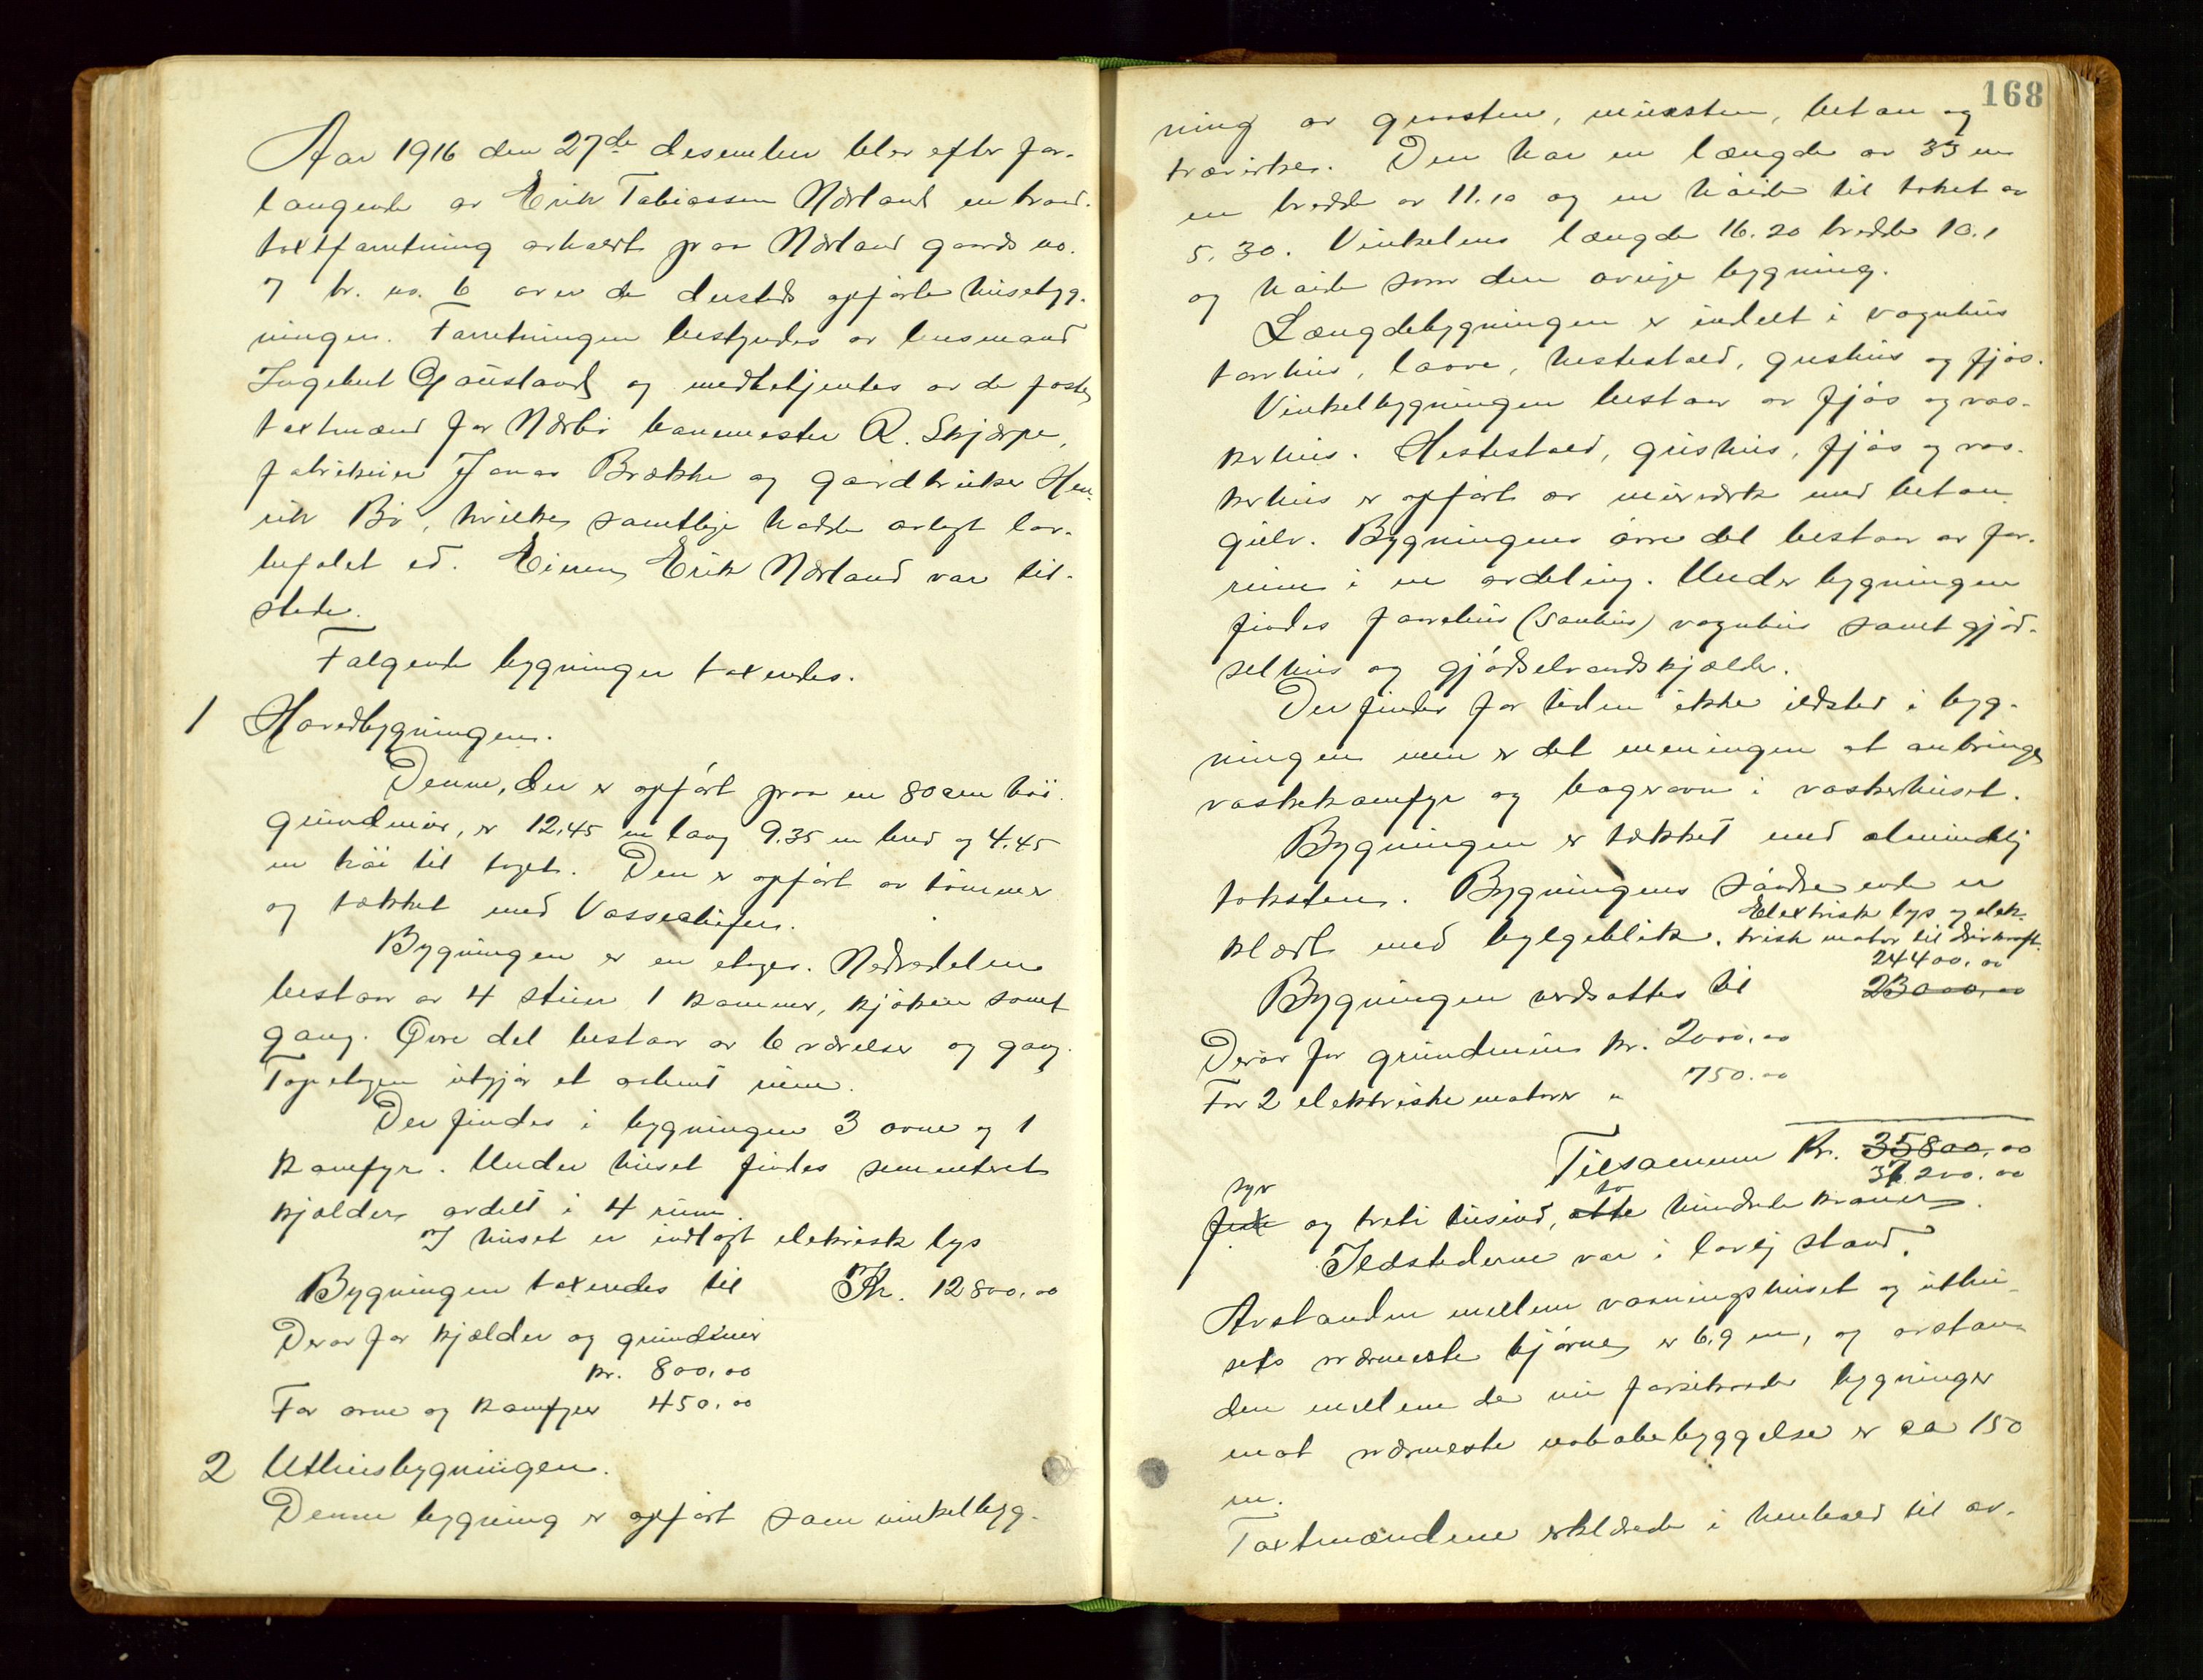 Aar 1916 den 27de desember blev efter for-
langende av Erik Tobiassen Nærland en brand-
taxtforretning avholdt paa Nærland gaards no.
7 br. no. 6 over de dersteds opførte husebyg-
ninger. Forretningen bestyrdes av lensmand
Ingebret Gausland og medbetjentes av de faste
taxtmænd for Nærbø banemester R. Skjærpe,
fabrikeier Jonas Brække og gardbruker Hen-
rik Bø, hvilke samtlige hadde avlagt lov-
befalet ed. Eieren Erik Nærland var til-
stede.
Følgende bygninger taxerdes.
1 Hovedbygningen.
Denne, der er opført paa en 80 cm høi
grundmur, er 12,45 m lang 9.35 m bred og 4.45
m høi til taget. Den er opført av tømmer
og tækket med Vosseskifer.
Bygningen er en etages. Nedredelen
bestaar av 4 stuer 1 kammer, kjøken samt
gang. Øvre del bestaar av 6 værelser og gang.
Topetagen utgjør et aapent rum.
Der findes i bygningen 3 ovne og 1
komfyr. Under huset findes sementert
kjelder avdelt i 4 rum.
I huset er indlagt elektrisk lys
Bygningen taxerdes til Kr. 12800,00
Derav for kjelder og grundmur
kr. 800,00
For ovne og komfyr 450,00
2 Uthusbygningen.
Denne bygning er opført som vinkelbyg-
168
ning av graasten, mursten, beton og
trævirke. Den har en længde av 35 m
en bredde av 11.10 og en høide til taket av
5.30. Vinkelens længde 16.20 bredde 10.1
og høide som den øvrige bygning.
Længdebygningen er indelt i vognhus
torvhus, laave, hestestald, grishus og fjøs.
Vinkelbygningen bestaar av fjøs og vas-
kerhus. Hestestald, grishus, fjøs og vas-
kerhus er opført av murverk med beton
gulv. Bygningens øvre del bestaar av for-
rum i en avdeling. Under bygningen
findes faarehus (sauhus) vognhus samt gjød-
selhus og gjødselvandskjelder.
Der findes for tiden ikke ildsted i byg-
ningen men er det meningen at anbringe
vaskekomfyr og bagerovn i vaskerhuset.
Bygningen er tækket med almindelig
taksten. Bygningens søndre ende er
klædt med bylgeblik. Elektrisk lys og elek-
trisk motor til drivkraft.
24400,00
Bygningen verdsattes til 23000,00
Derav for grundmur kr. 2000,00
For 2 elektriske motorer " 750.00
Tilsammen Kr. 35800,00
37200.00
syv to
fem og treti tusind, otte hundrede kroner.
Ildstederne var i lovlig stand.
Avstanden mellem vaaningshuset og uthu-
sets nærmeste hjørne er 6.9 m, og avstan-
den mellem de nu forsikrede bygninger
mot nærmeste nabobebyggelse er ca 150
m.
Taxtmændene erklærede i henhold til av-